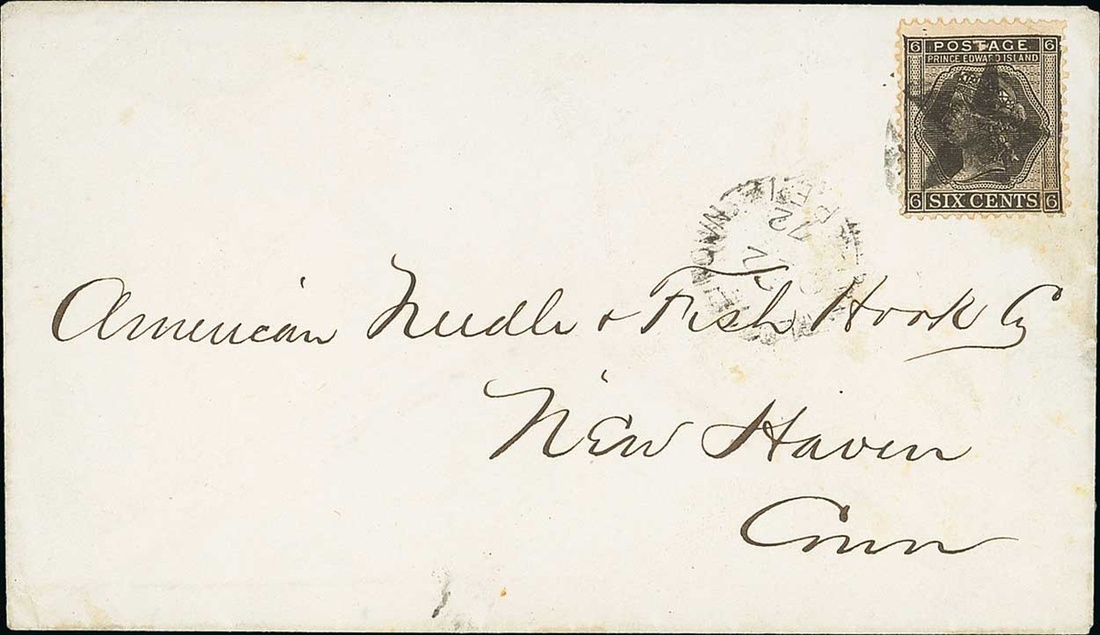 6 POSTAGE 6
PRINCE EDWARD ISLAND
6 SIX CENTS 6
72
American Needle & Fish Hook Cy
New Haven
Conn